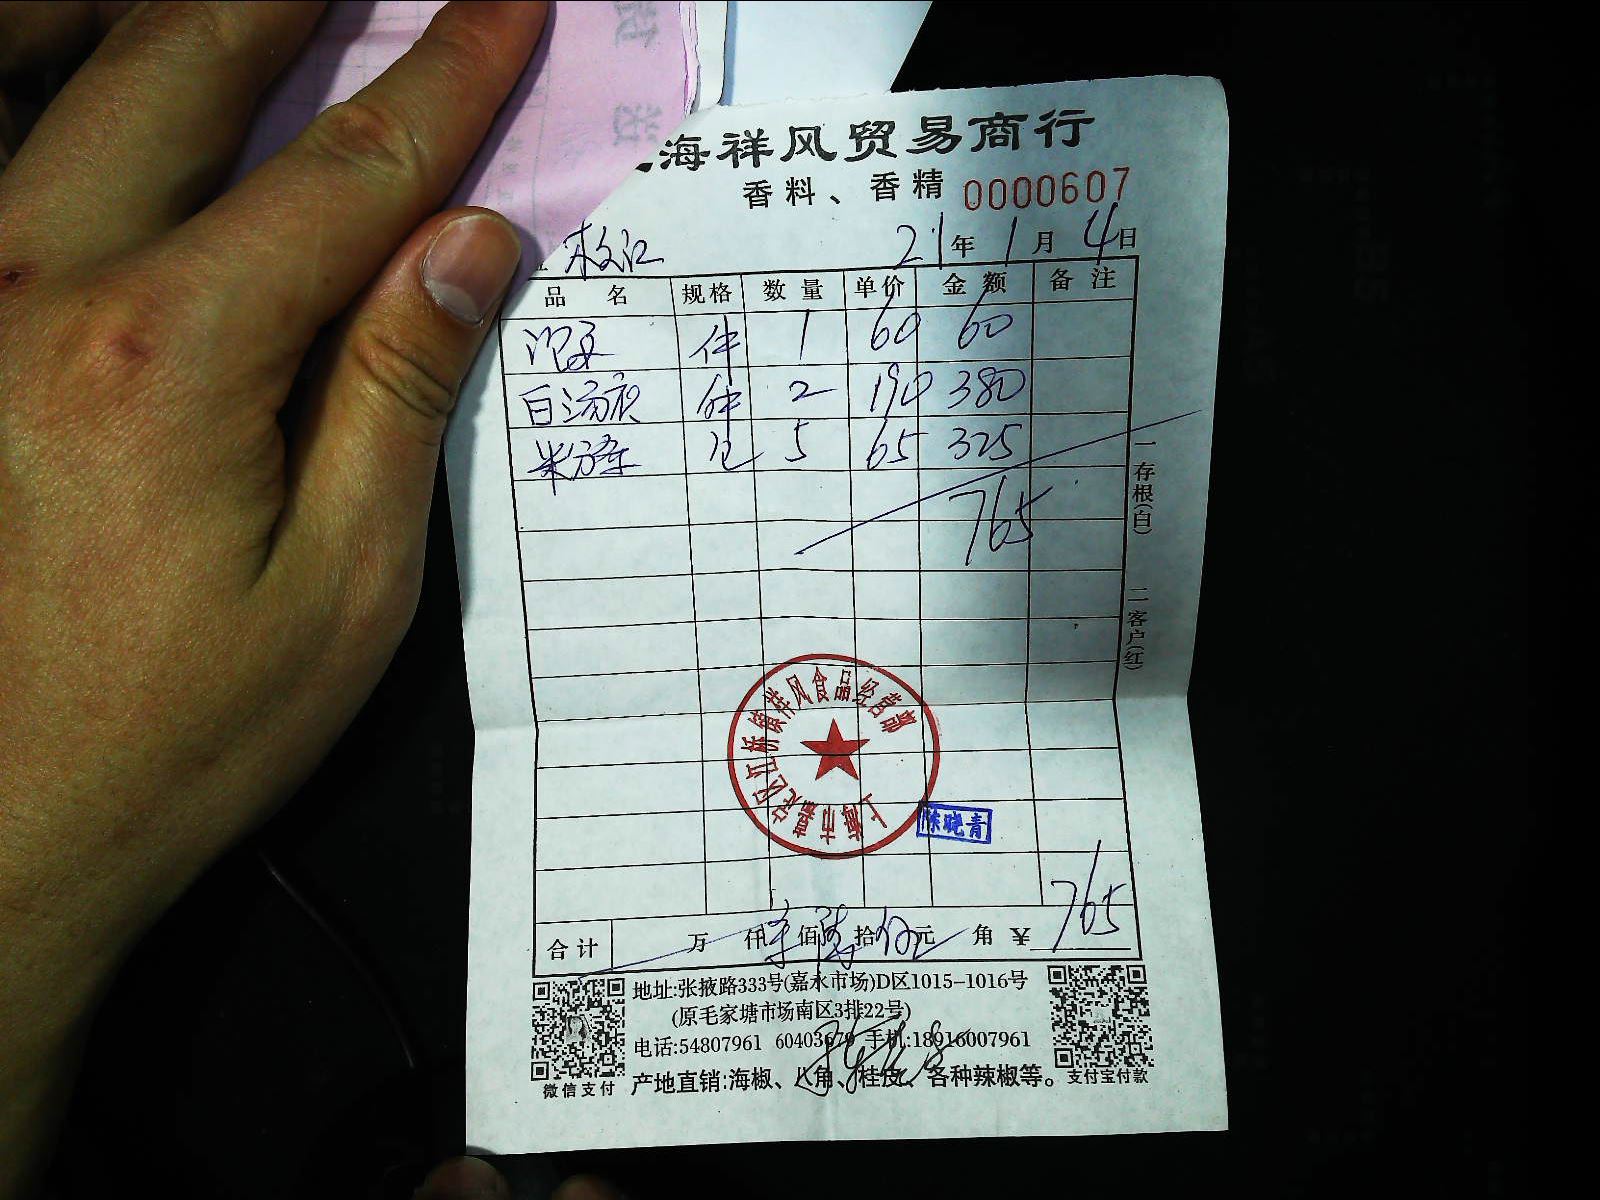 海祥风贸易商行
香料、香精 0000607
21年1月4日
品名 规格 数量 单价 金额 备注
件 1 60 60
白汤液 件 2 190 380
5 65 325
765
一存根(白) 二客户(红)
上海市嘉定区江桥镇祥风食品经营部
陈晓青
合计 万仟柒佰陆拾伍元角¥765
地址:张掖路333号(嘉永市场)D区1015-1016号
(原毛家塘市场南区3排22号)
电话:54807961 60403679 手机:18916007961
产地直销:海椒、八角、桂皮、各种辣椒等。
微信支付
支付宝付款